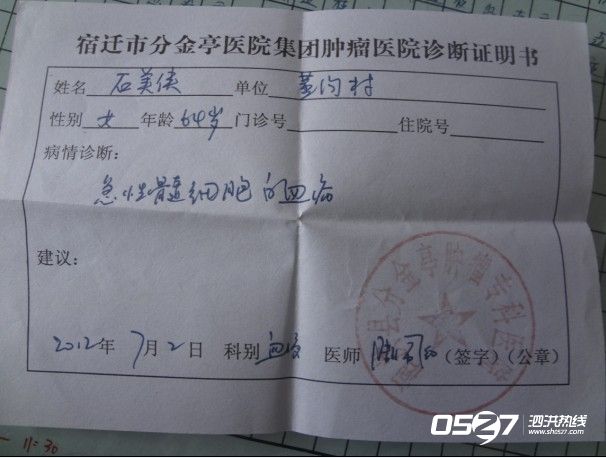 宿迁市分金亭医院集团肿瘤医院诊断证明书
姓名 石美侠 单位 姜沟村
性别 女 年龄 64岁 门诊号 住院号
病情诊断:
急性髓细胞白血病
建议:
2012年 7月2日 科别 血液 医师 (签字)(公章)
县分金亭肿瘤专科医院
11:30
0527 泗洪热线
www.sh0527.com